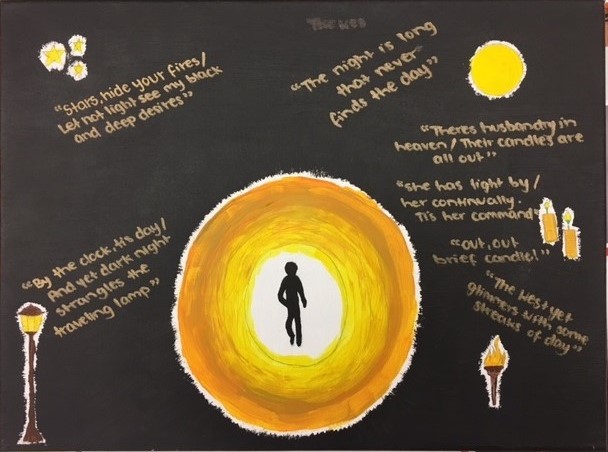 "Stars, hide your fires/
Let not light see my black
and deep desires"
"The night is long
that never
finds the day"
"Theres husbandry in
heaven/Their candles are
all out"
"She has light by/
her continually.
Tis her command"
"out, out
brief candle!"
"The West yet
glimmers with some
streaks of day"
"By the clock, tis day/
And yet dark night
strangles the
traveling lamp"